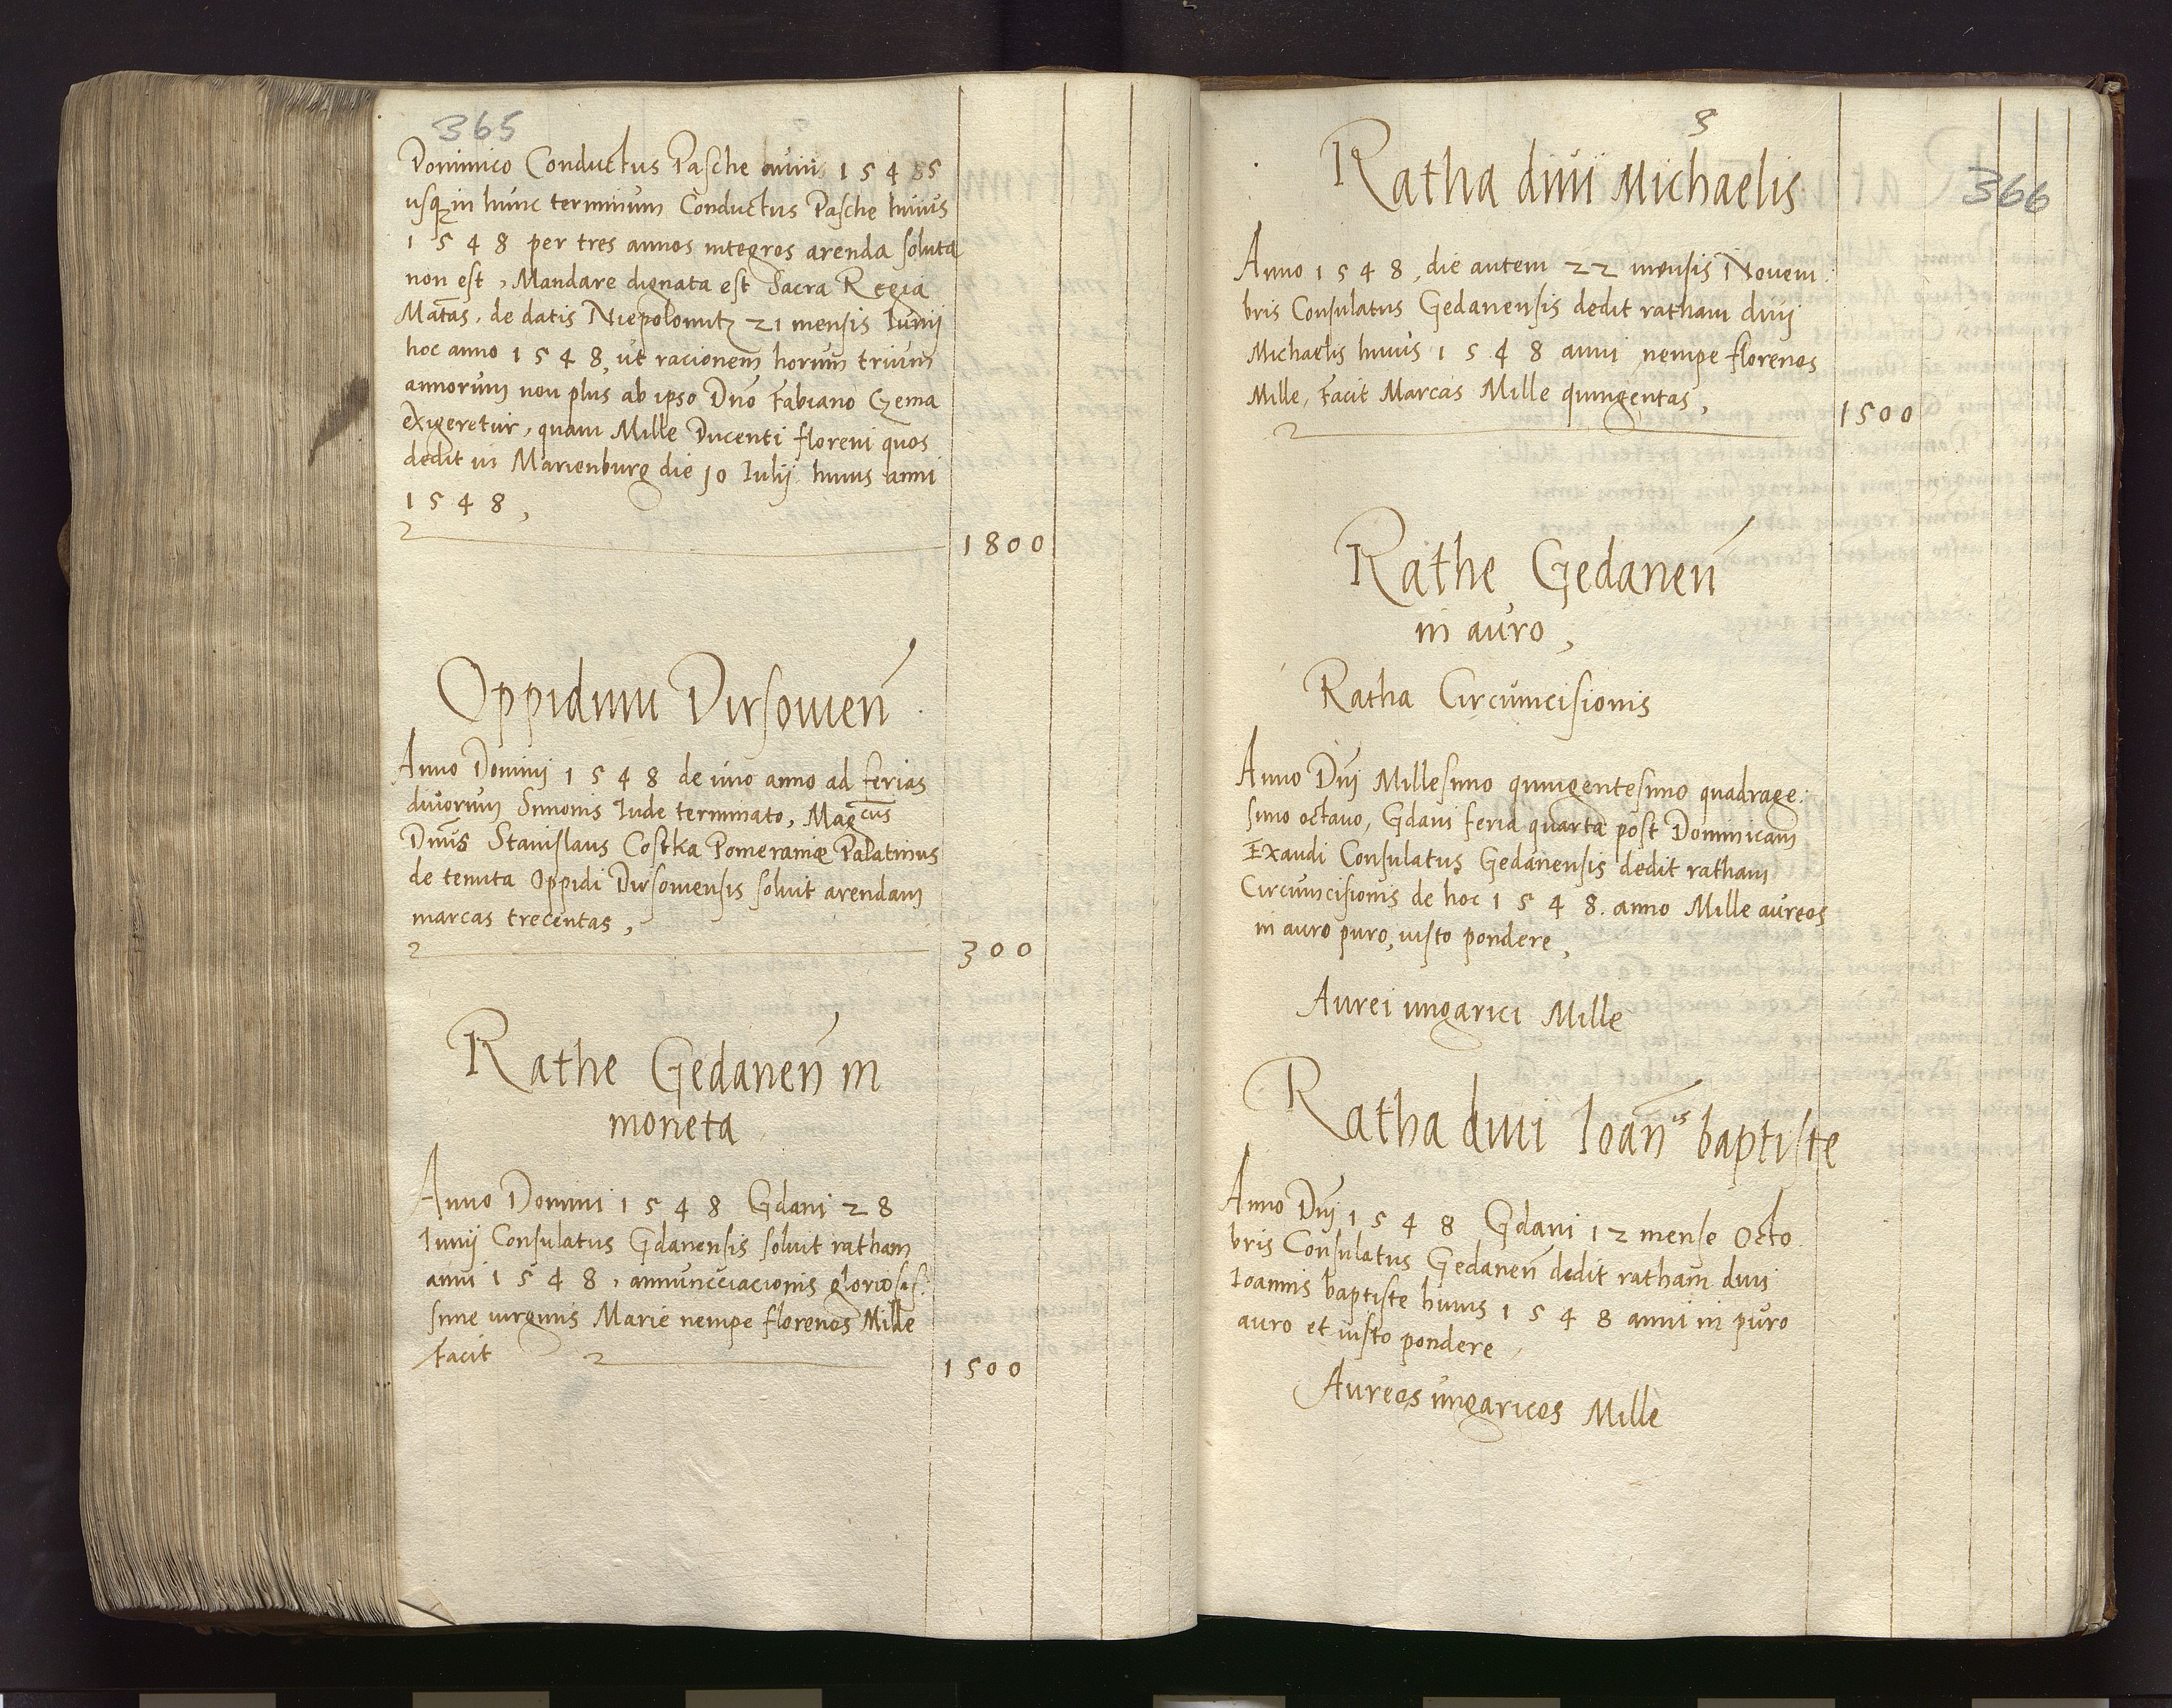 365
Dominico Conductus Pasche anni 1545
usq; in hunc terminum Conductus Pasche huius
1548 per tres annos integros arenda soluta
non est, Mandare dignata est Sacra Regia
Mãtas. de datis Niepolomitz 21 mensis Iunij
hoc anno 1548, ut racionem horum trium
annorum non plus ab ipso Dño Fabiano Czema
exigeretur, quam Mille Ducenti floreni quos
dedit in Marienburg die 10 Iulij huius anni
1548,
1800
Oppidum Dirsouien̄
Anno Domini 1548 de uno anno ad ferias
duorum Simonis Iude terminato, Magcus
Dnūs Stanislaus Costka Pomeraniæ Palatinus
de tenuta Oppidi Dirsouiensis soluit arendam
marcas trecentas,
300
Rathe Gedanen̄ in
moneta
Anno Domini 1548 Gdani 28
Iunij Consulatus Gdanensis soluit ratham
anni 1548, annuncciacionis gloriosis:
sime uirginis Marie nempe florenos Mille
facit
1500
3
366
Ratha diui Michaelis
Anno 1548, die autem 22 mensis Nouem:
bris Consulatus Gedanensis dedit ratham diuj
Michaelis huius 1548 anni nempe florenos
Mille, facit Marcas Mille quingentas,
1500
Rathe Gedanen̄
in auro,
Ratha Circumcisionis
Anno Dn̄j Millesimo quingentesimo quadrage:
simo octauo, Gdani feria quarta post Dominicam
Exaudi Consulatus Gedanensis dedit ratham
Circumcisionis de hoc 1548. anno Mille aureos
in auro puro, iusto pondere,
Aurei ungarici Mille
Ratha diui Ioan̄is baptiste
Anno Dn̄j 1548 Gdani 12 mense Octo
bris Consulatus Gedanen̄ dedit ratham diui
Ioannis baptiste huius 1548 anni in puro
auro et iusto pondere,
Aureos ungaricos Mille